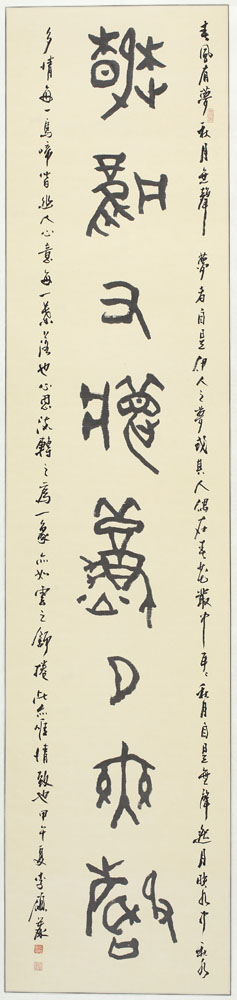 春風有夢秋月無聲
春風有夢秋月無聲 夢者自是伊人之夢或其人偶在春花叢中耳秋月自是無聲然月映水中
多情每一鳥啼皆幽人心意每一葉落也心思流轉之為一象亦如雲之舒捲此亦惟情致也甲午夏李